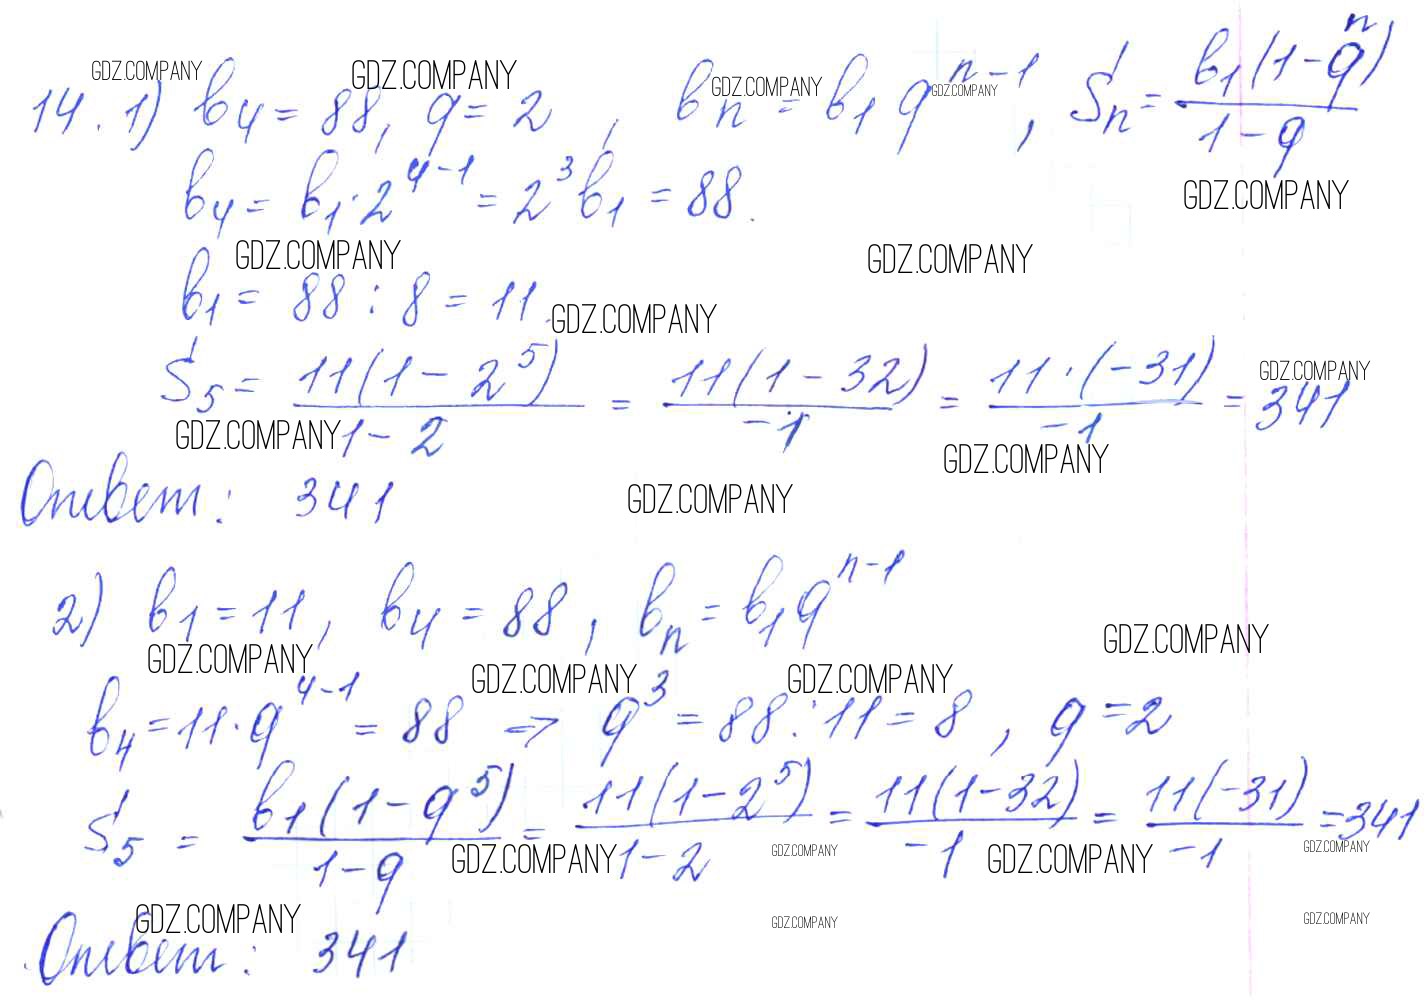 GDZ.COMPANY GDZ.COMPANY GDZ.COMPANY GDZ.COMPANY
14. 1) b₄ = 88, q = 2, bₙ = b₁qⁿ⁻¹, Sₙ = b₁(1-qⁿ)/(1-q)
GDZ.COMPANY
b₄ = b₁·2⁴⁻¹ = 2³b₁ = 88.
GDZ.COMPANY GDZ.COMPANY
b₁ = 88 : 8 = 11.
GDZ.COMPANY
S₅ = 11(1-2⁵)/(1-2) = 11(1-32)/(-1) = 11·(-31)/(-1) = 341
GDZ.COMPANY
GDZ.COMPANY GDZ.COMPANY
Ответ: 341
GDZ.COMPANY
2) b₁ = 11, b₄ = 88, bₙ = b₁qⁿ⁻¹
GDZ.COMPANY
GDZ.COMPANY GDZ.COMPANY GDZ.COMPANY
b₄ = 11·q⁴⁻¹ = 88 => q³ = 88 : 11 = 8, q = 2
S₅ = b₁(1-q⁵)/(1-q) = 11(1-2⁵)/(1-2) = 11(1-32)/(-1) = 11(-31)/(-1) = 341
GDZ.COMPANY GDZ.COMPANY GDZ.COMPANY GDZ.COMPANY
GDZ.COMPANY GDZ.COMPANY GDZ.COMPANY
Ответ: 341